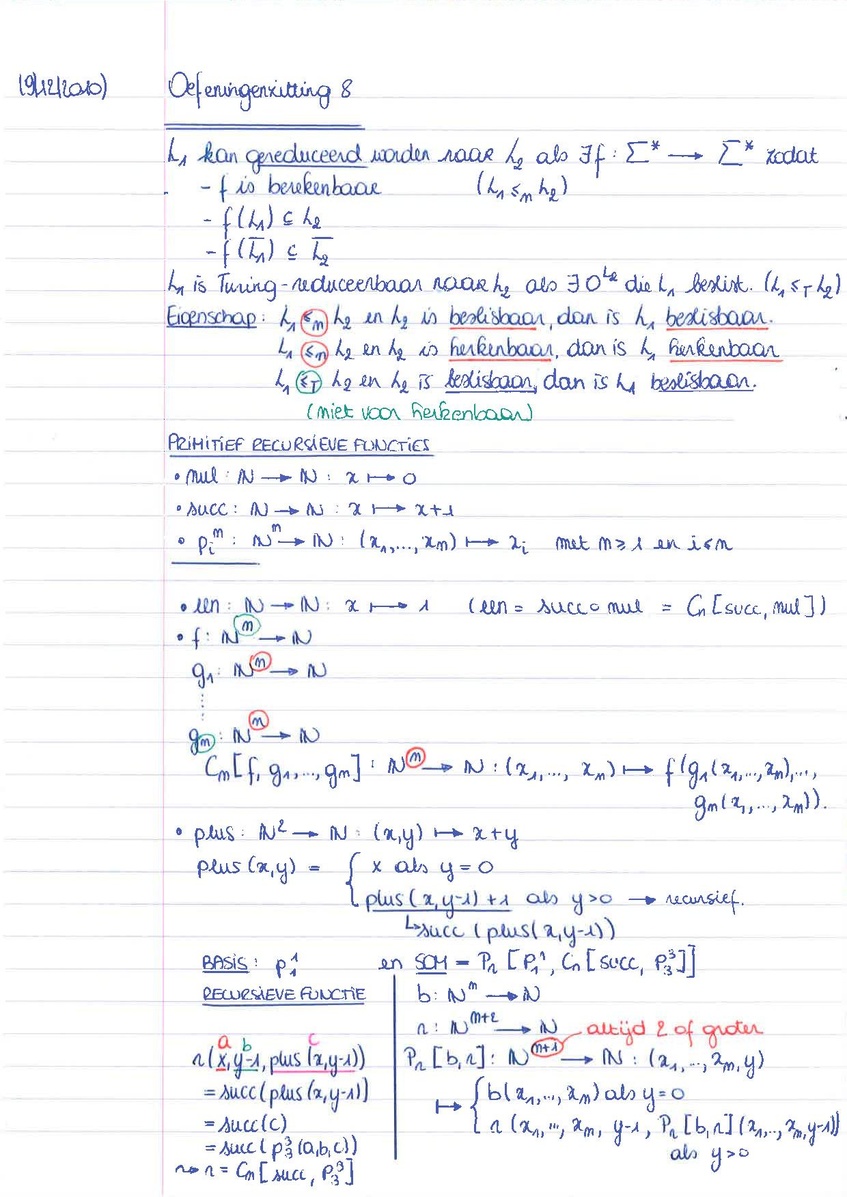 (9/12/2010) Oefeningenzitting 8
L₁ kan gereduceerd worden naar L₂ als ∃f : Σ* → Σ* zodat
- f is berekenbaar (L₁ ≤ₘ L₂)
- f(L₁) ⊆ L₂
- f(L̅₁) ⊆ L̅₂
L₁ is Turing-reduceerbaar naar L₂ als ∃ O^L₂ die L₁ beslist. (L₁ ≤_T L₂)
Eigenschap: L₁ ≤ₘ L₂ en L₂ is beslisbaar, dan is L₁ beslisbaar.
L₁ ≤ₘ L₂ en L₂ is herkenbaar, dan is L₁ herkenbaar
L₁ ≤_T L₂ en L₂ is beslisbaar, dan is L₁ beslisbaar.
(niet voor herkenbaar)
PRIMITIEF RECURSIEVE FUNCTIES
• nul : ℕ → ℕ : x ↦ 0
• succ : ℕ → ℕ : x ↦ x+1
• pᵢⁿ : ℕⁿ → ℕ : (x₁,...,xₙ) ↦ xᵢ met n ≥ 1 en i ≤ n
• een : ℕ → ℕ : x ↦ 1 (een = succ ∘ nul = Cn[succ, nul])
• f : ℕᵐ → ℕ
g₁ : ℕⁿ → ℕ
⋮
gₘ : ℕⁿ → ℕ
Cn[f, g₁,..., gₘ] : ℕⁿ → ℕ : (x₁,..., xₙ) ↦ f(g₁(x₁,...,xₙ),...,
gₘ(x₁,...,xₙ)).
• plus : ℕ² → ℕ : (x,y) ↦ x+y
plus(x,y) = { x als y=0
plus(x,y-1)+1 als y>0 → recursief.
↳ succ(plus(x,y-1))
BASIS : p₁¹ en SOM = Pr[p₁¹, Cn[succ, p₃³]]
RECURSIEVE FUNCTIE
a b c
r(x,y-1,plus(x,y-1))
= succ(plus(x,y-1))
= succ(c)
= succ(p₃³(a,b,c))
⇝ r = Cn[succ, p₃³]
b : ℕⁿ → ℕ
r : ℕⁿ⁺² → ℕ altijd 2 of groter
Pr[b,r] : ℕⁿ⁺¹ → ℕ : (x₁,...,xₙ,y)
↦ { b(x₁,...,xₙ) als y=0
r(x₁,...,xₙ, y-1, Pr[b,r](x₁,...,xₙ,y-1))
als y>0